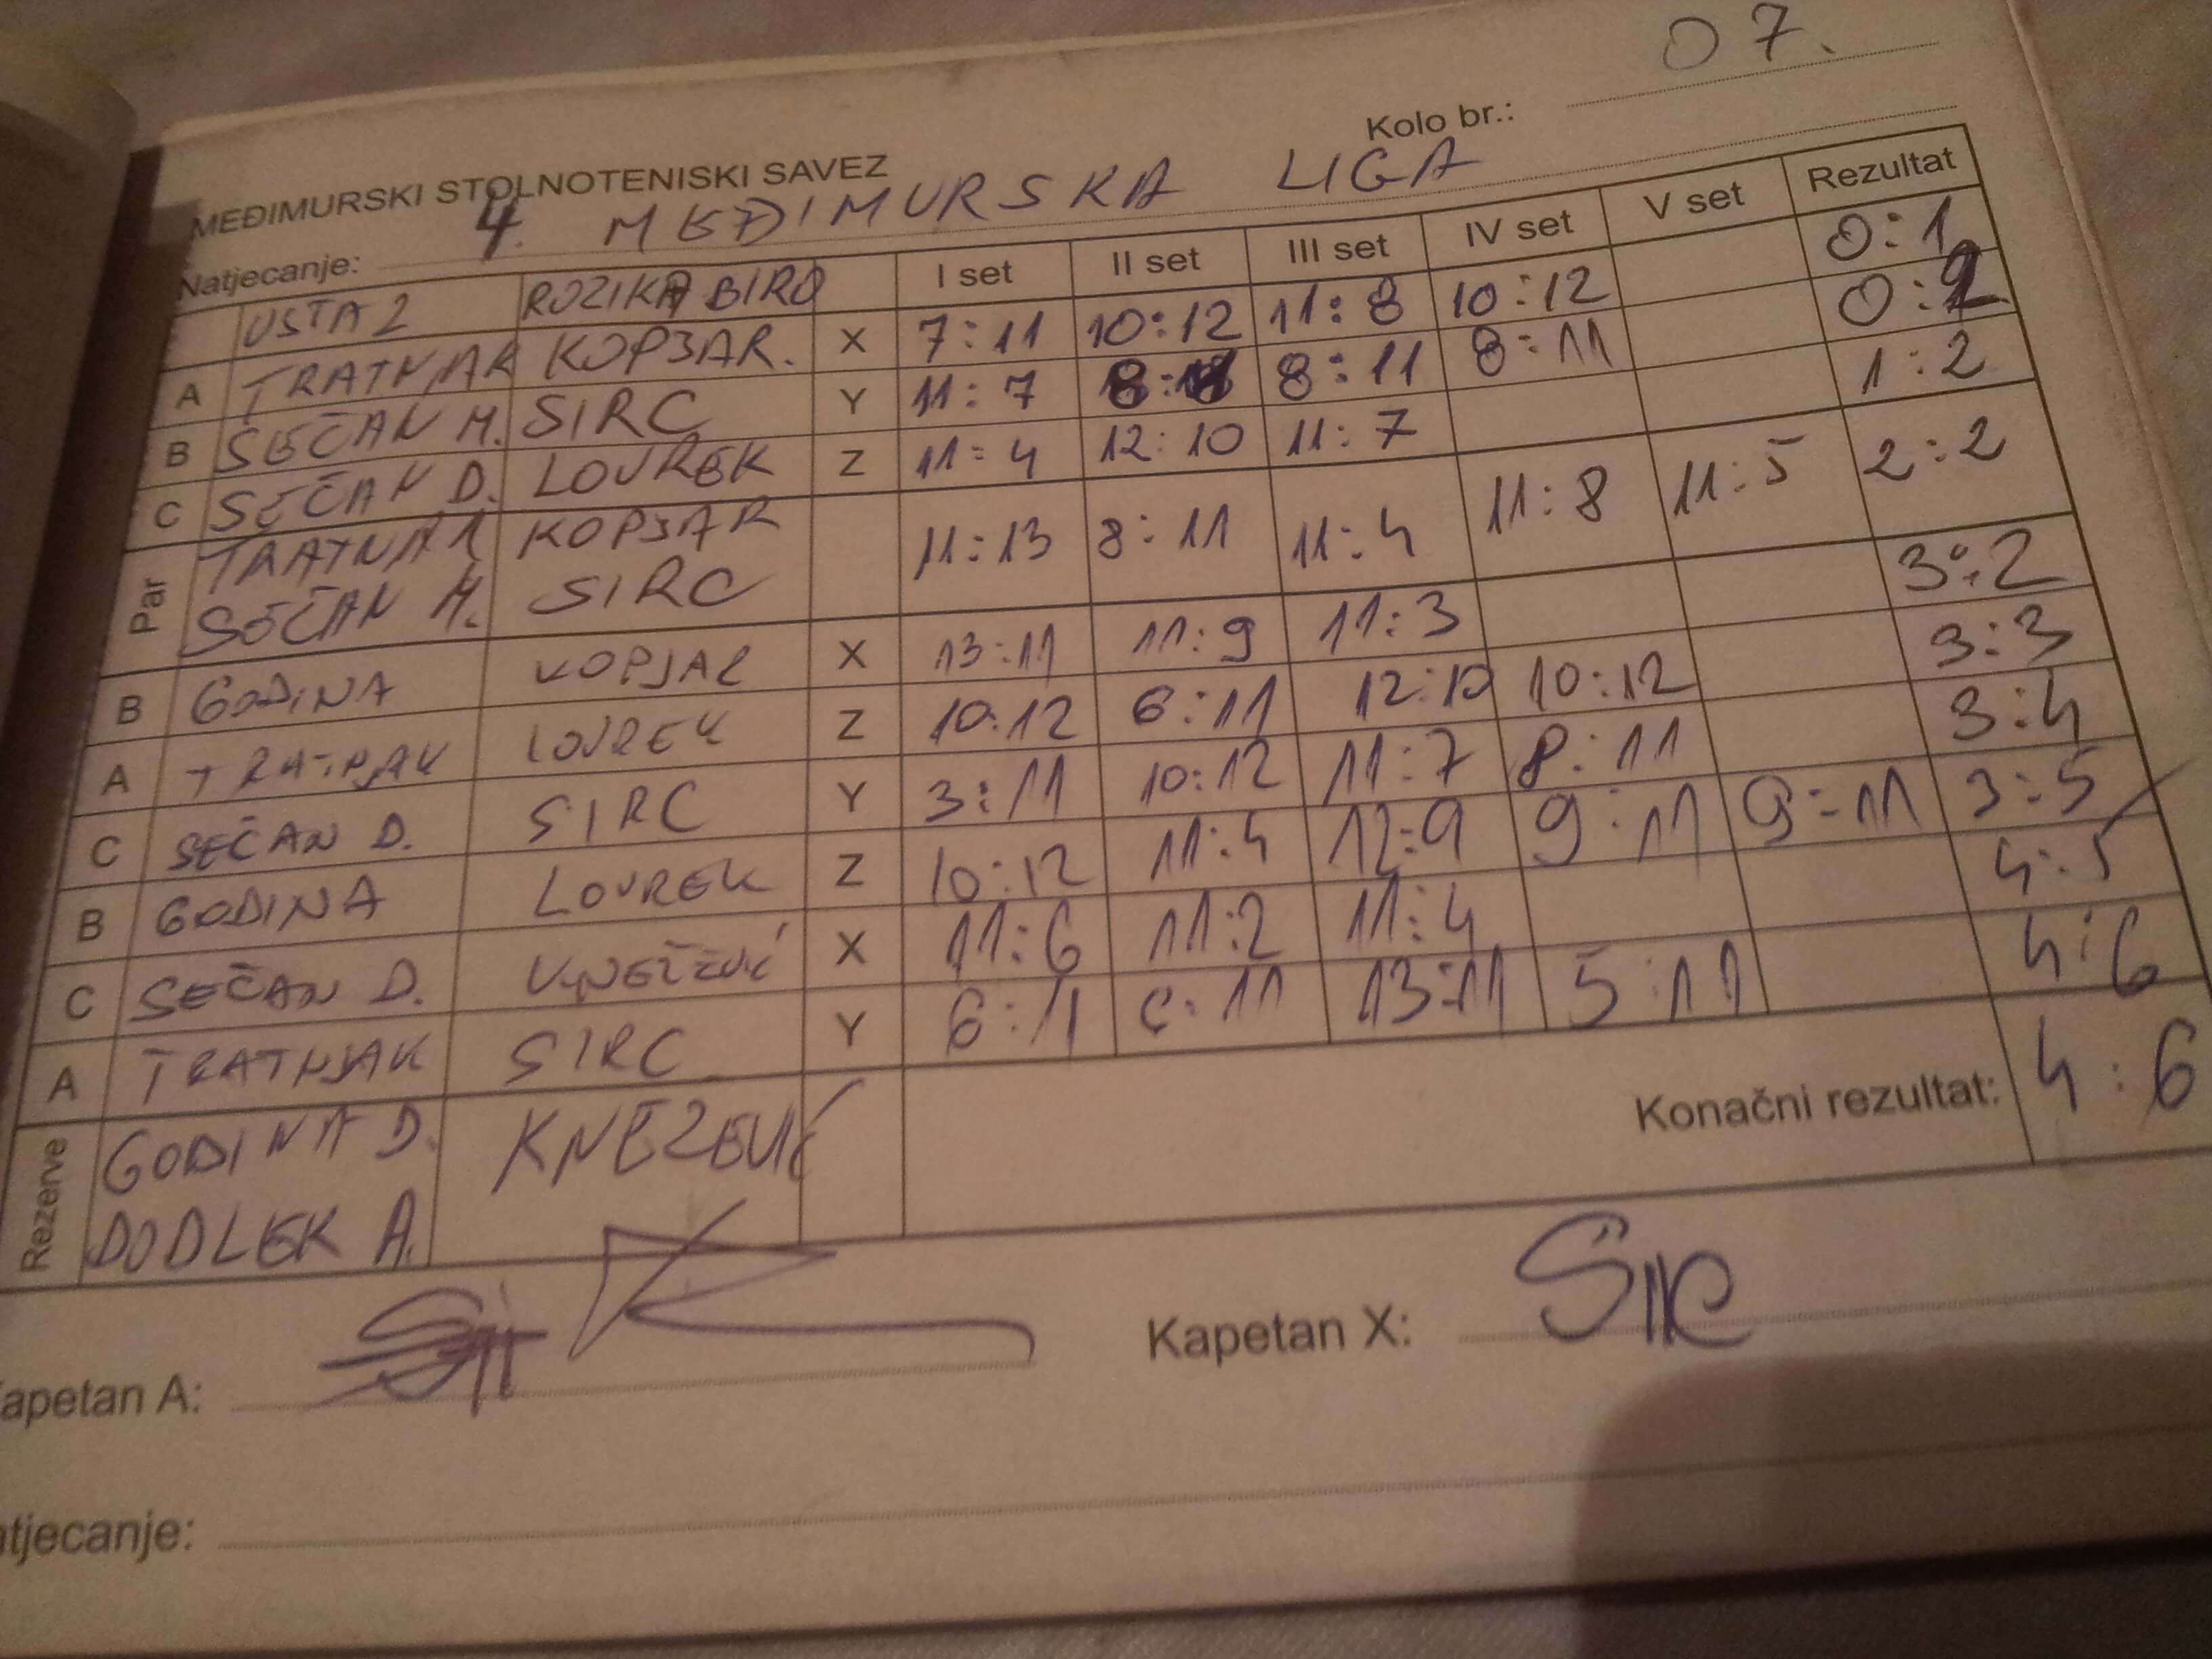 Kolo br.: 07.
MEĐIMURSKI STOLNOTENISKI SAVEZ
Natjecanje: 4. MEĐIMURSKA LIGA
USTA 2 ROZIKA BIRO I set II set III set IV set V set Rezultat
A TRATNJAK KOPJAR. X 7:11 10:12 11:8 10:12 0:1
B SEČAN M. SIRC Y 11:7 8:11 8:11 8:11 0:2
C SEČAN D. LOVREK Z 11:4 12:10 11:7 1:2
Par TRATNJAK KOPJAR 11:13 8:11 11:4 11:8 11:5 2:2
SEČAN M. SIRC
B GODINA KOPJAR X 13:11 11:9 11:3 3:2
A TRATNJAK LOVREK Z 10:12 6:11 12:10 10:12 3:3
C SEČAN D. SIRC Y 3:11 10:12 11:7 8:11 3:4
B GODINA LOVREK Z 10:12 11:4 12:9 9:11 9:11 3:5
C SEČAN D. KNEŽEVIĆ X 11:6 11:2 11:4 4:5
A TRATNJAK SIRC Y 6:11 6:11 13:11 5:11 4:6
Rezerve GODINA D. KNEŽEVIĆ Konačni rezultat: 4:6
DODLEK A.
apetan A: Kapetan X: SIRC
tjecanje: